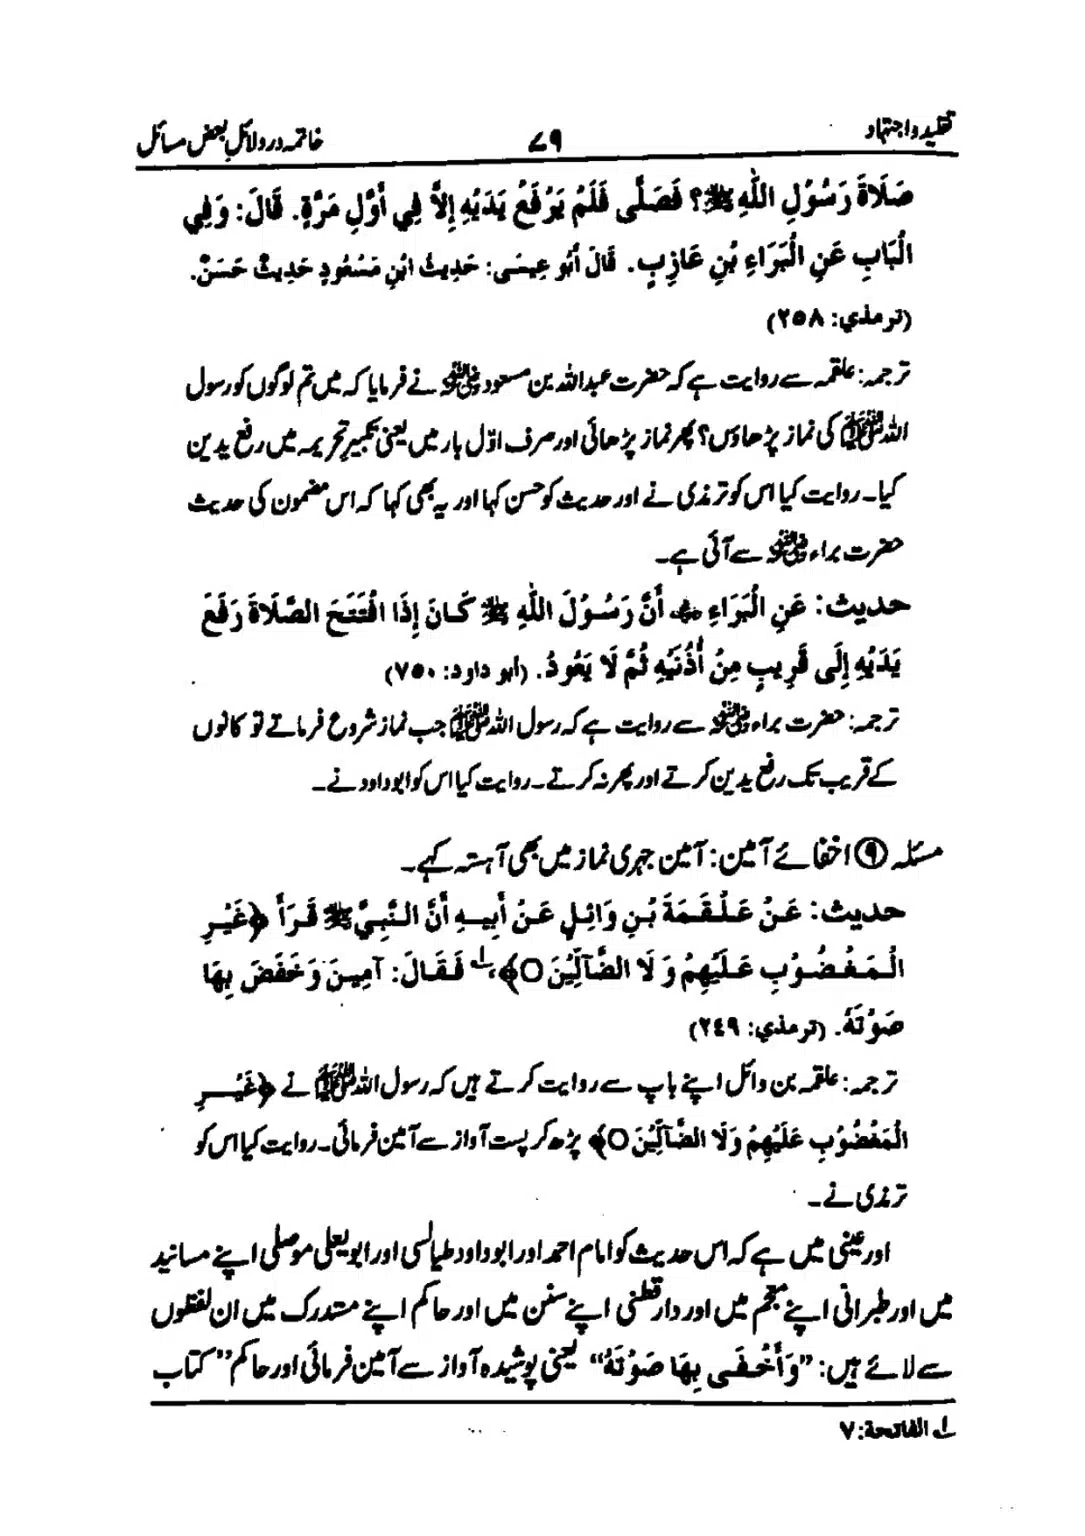 تقلید و اجتہاد ۷۹ خاتمہ در دلائلِ بعض مسائل
صَلَاةَ رَسُوْلِ اللّٰهِ ﷺ؟ فَصَلَّى فَلَمْ يَرْفَعْ يَدَيْهِ إِلَّا فِي أَوَّلِ مَرَّةٍ. قَالَ: وَفِي
الْبَابِ عَنِ الْبَرَاءِ بْنِ عَازِبٍ. قَالَ أَبُو عِيسَى: حَدِيثُ ابْنِ مَسْعُودٍ حَدِيثٌ حَسَنٌ.
(ترمذي: ۲۵۸)
ترجمہ: علقمہ سے روایت ہے کہ حضرت عبداللہ بن مسعود رضی اللہ عنہ نے فرمایا کہ میں تم لوگوں کو رسول
اللہ ﷺ کی نماز پڑھاؤں؟ پھر نماز پڑھائی اور صرف اوّل بار میں یعنی تکبیرِ تحریمہ میں رفع یدین
کیا۔ روایت کیا اس کو ترمذی نے اور حدیث کو حسن کہا اور یہ بھی کہا کہ اس مضمون کی حدیث
حضرت براء رضی اللہ عنہ سے آئی ہے۔
حدیث: عَنِ الْبَرَاءِ رضی اللہ عنہ أَنَّ رَسُوْلَ اللّٰهِ ﷺ كَانَ إِذَا افْتَتَحَ الصَّلَاةَ رَفَعَ
يَدَيْهِ إِلَى قَرِيبٍ مِنْ أُذُنَيْهِ ثُمَّ لَا يَعُودُ. (أبو داود: ۷۵۰)
ترجمہ: حضرت براء رضی اللہ عنہ سے روایت ہے کہ رسول اللہ ﷺ جب نماز شروع فرماتے تو کانوں
کے قریب تک رفع یدین کرتے اور پھر نہ کرتے۔ روایت کیا اس کو ابو داود نے۔
مسئلہ ⑨ اخفائے آمین: آمین جہری نماز میں بھی آہستہ کہے۔
حدیث: عَنْ عَلْقَمَةَ بْنِ وَائِلٍ عَنْ أَبِيهِ أَنَّ النَّبِيَّ ﷺ قَرَأَ ﴿غَيْرِ
الْمَغْضُوْبِ عَلَيْهِمْ وَلَا الضَّآلِّيْنَ ○﴾، ؂۱ فَقَالَ: آمِينَ وَخَفَضَ بِهَا
صَوْتَهٗ. (ترمذي: ۲٤۹)
ترجمہ: علقمہ بن وائل اپنے باپ سے روایت کرتے ہیں کہ رسول اللہ ﷺ نے ﴿غَيْرِ
الْمَغْضُوْبِ عَلَيْهِمْ وَلَا الضَّآلِّيْنَ ○﴾ پڑھ کر پست آواز سے آمین فرمائی۔ روایت کیا اس کو
ترمذی نے۔
اور عینی میں ہے کہ اس حدیث کو امام احمد اور ابو داود طیالسی اور ابویعلی موصلی اپنے مسانید
میں اور طبرانی اپنے معجم میں اور دارقطنی اپنے سنن میں اور حاکم اپنے مستدرک میں ان لفظوں
سے لائے ہیں: ”وَأَخْفَى بِهَا صَوْتَهٗ“ یعنی پوشیدہ آواز سے آمین فرمائی اور حاکم ”کتاب
؂۱ الفاتحة: ۷